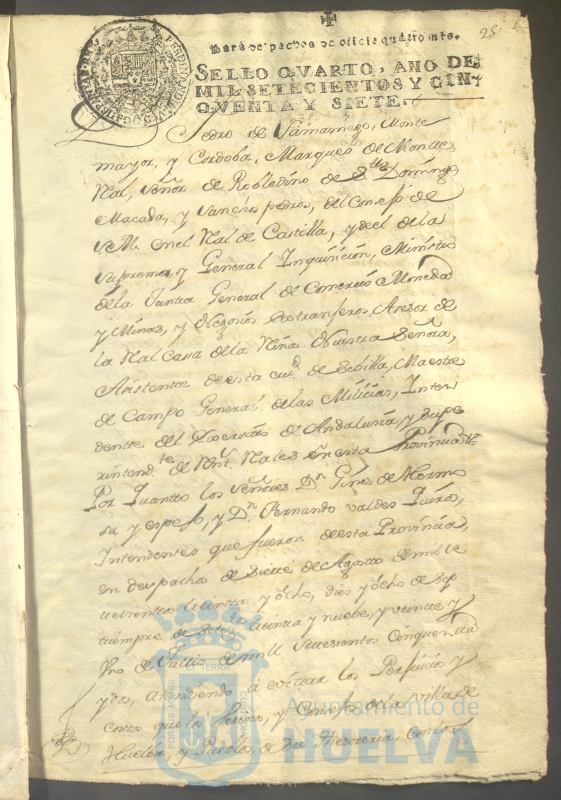 25
Para despachos de oficio quatro mrs.
SELLO QVARTO, AÑO DE
MIL SETECIENTOS Y CIN,
QVENTA Y SIETE.
Pedro de Samaniego, Monte
mayor, y Cordoba, Marques de Monte
Ral, Señor de Robledino de Sto. Domingo
Macada, y Sanchopedro, del Consejo de
S. M. en el Ral de Castilla, y de el de la
Suprema y General Inquisicion, Ministro
de la Junta General de Comercio Moneda
y Minas, y Negocios Extranjeros Asesor de
la Real Cassa de la Reina Nuestra Señora,
Asistente de esta ciud. de Sevilla, Maestre
de Campo General de las Milicias, Inten
dente del Exercito de Andalucia, y Supe
rintendte. de Rent. Rales en esta Provincia
Por Quanto los Señores Dn. Gines de Hermo
sa y espejo, y Dn. Fernando Valdes Quiros,
Intendentes que fueron de esta Provincia,
en despachos de Siete de Agosto de mill
setecientos treinta y ocho, dies y ocho de Sep
tiempre de treinta y nuebe, y veinte y
tres de Jullio de mill Settecientos Cinquenta
y dos, atendiendo a evittar los Perjuicios y
costas que los Vecinos, y Consejo de la Villa de
Huelva, y Pueblos de su Thesoreria, con los
Ayuntamiento de
HUELVA